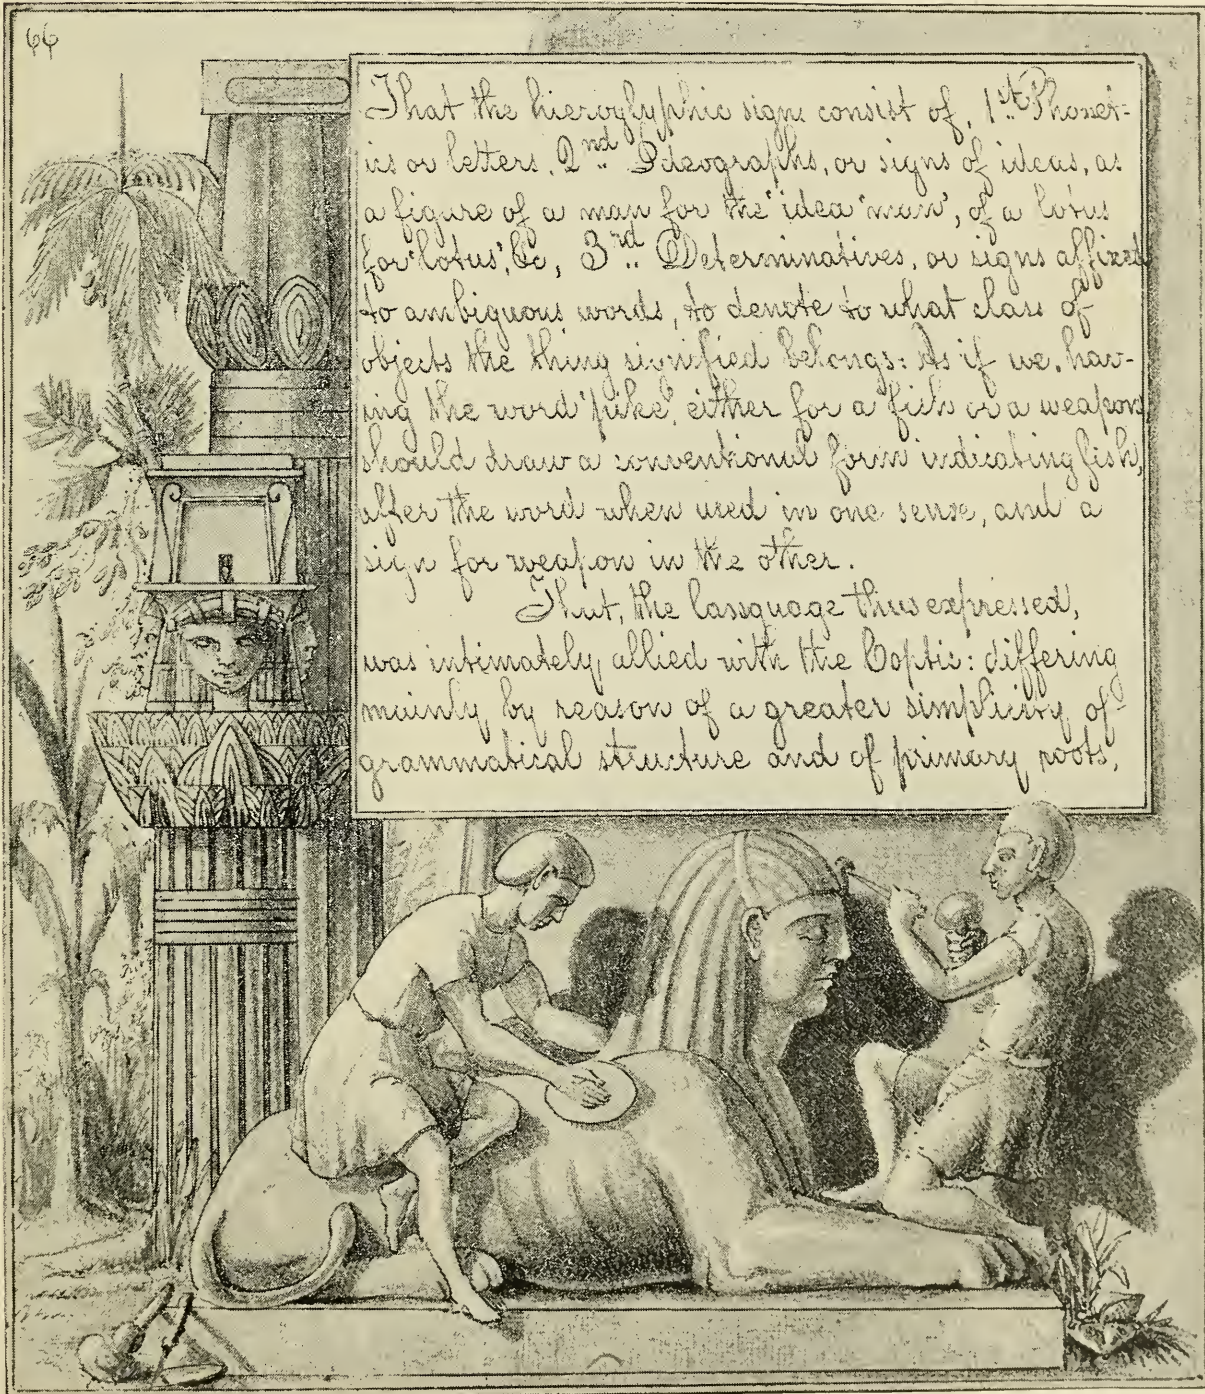 66
That the hieroglyphic signs consist of, 1st Phonet-
ics or letters, 2nd Ideographs, or signs of ideas, as
a figure of a man for the idea 'man', of a lotus
for 'lotus', &c, 3rd Determinatives, or signs affixed
to ambiguous words, to denote to what class of
objects the thing signified belongs: As if we, hav-
ing the word 'pike', either for a fish or a weapon
should draw a conventional form indicating fish,
after the word when used in one sense, and a
sign for weapon in the other.
That, the language thus expressed,
was intimately allied with the Coptic: differing
mainly by reason of a greater simplicity of
grammatical structure and of primary roots,